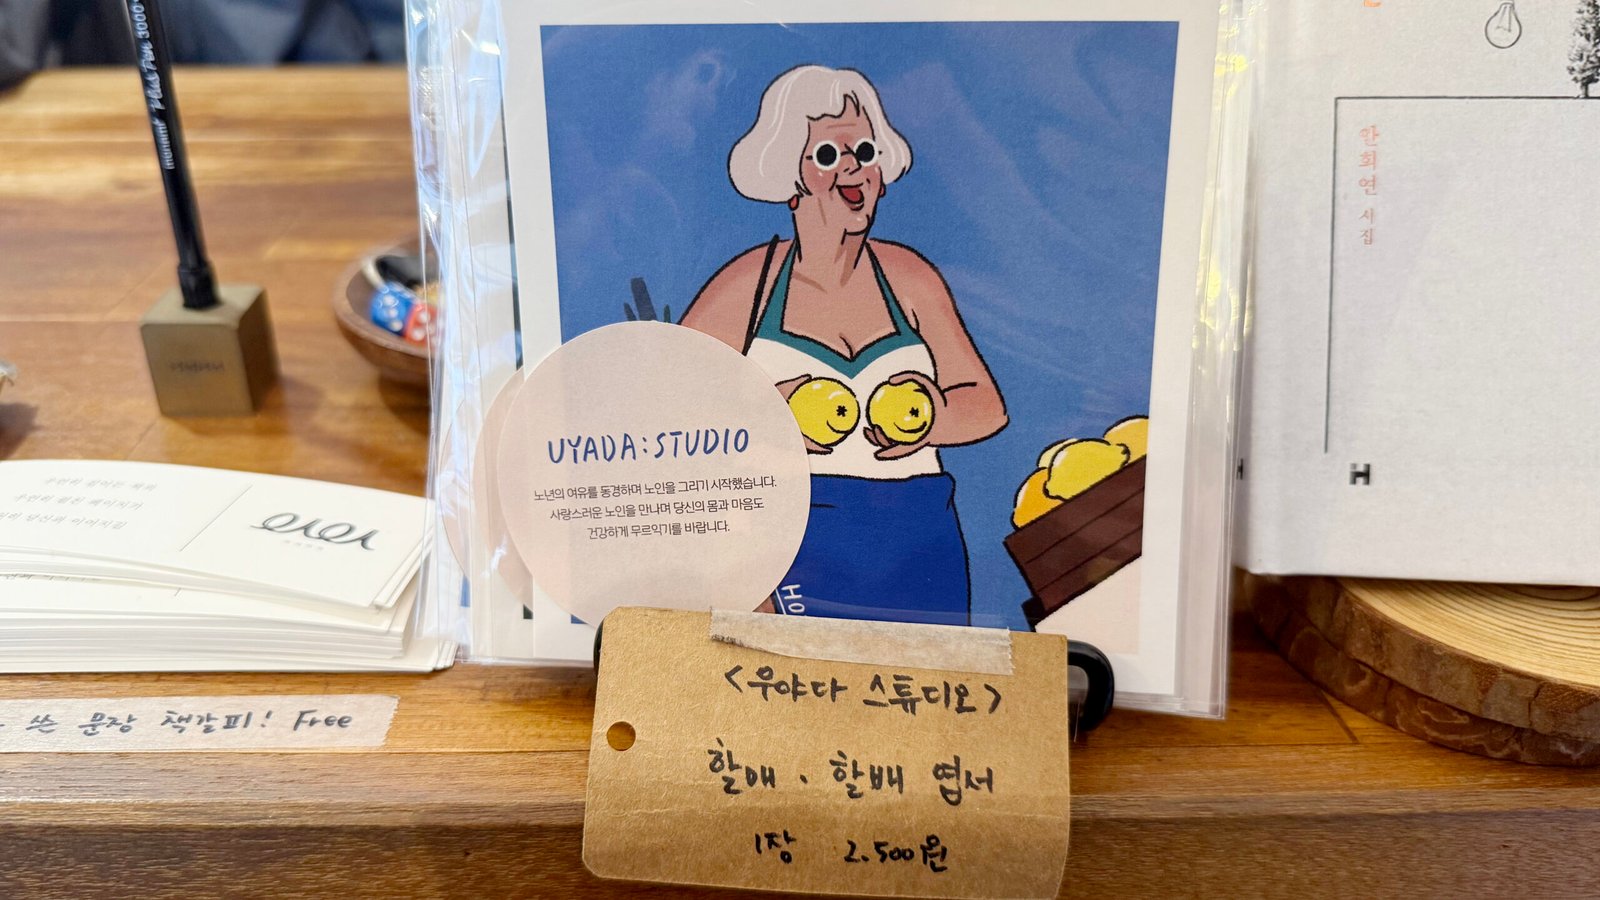 monami Plus Pen 3000
UYADA:STUDIO
노년의 여유를 동경하며 노인을 그리기 시작했습니다.
사랑스러운 노인을 만나며 당신의 몸과 마음도
건강하게 무르익기를 바랍니다.
HO
<우야다 스튜디오>
할매 · 할배 엽서
1장 2.500원
쓴 문장 책갈피! Free
안희연 시집
H